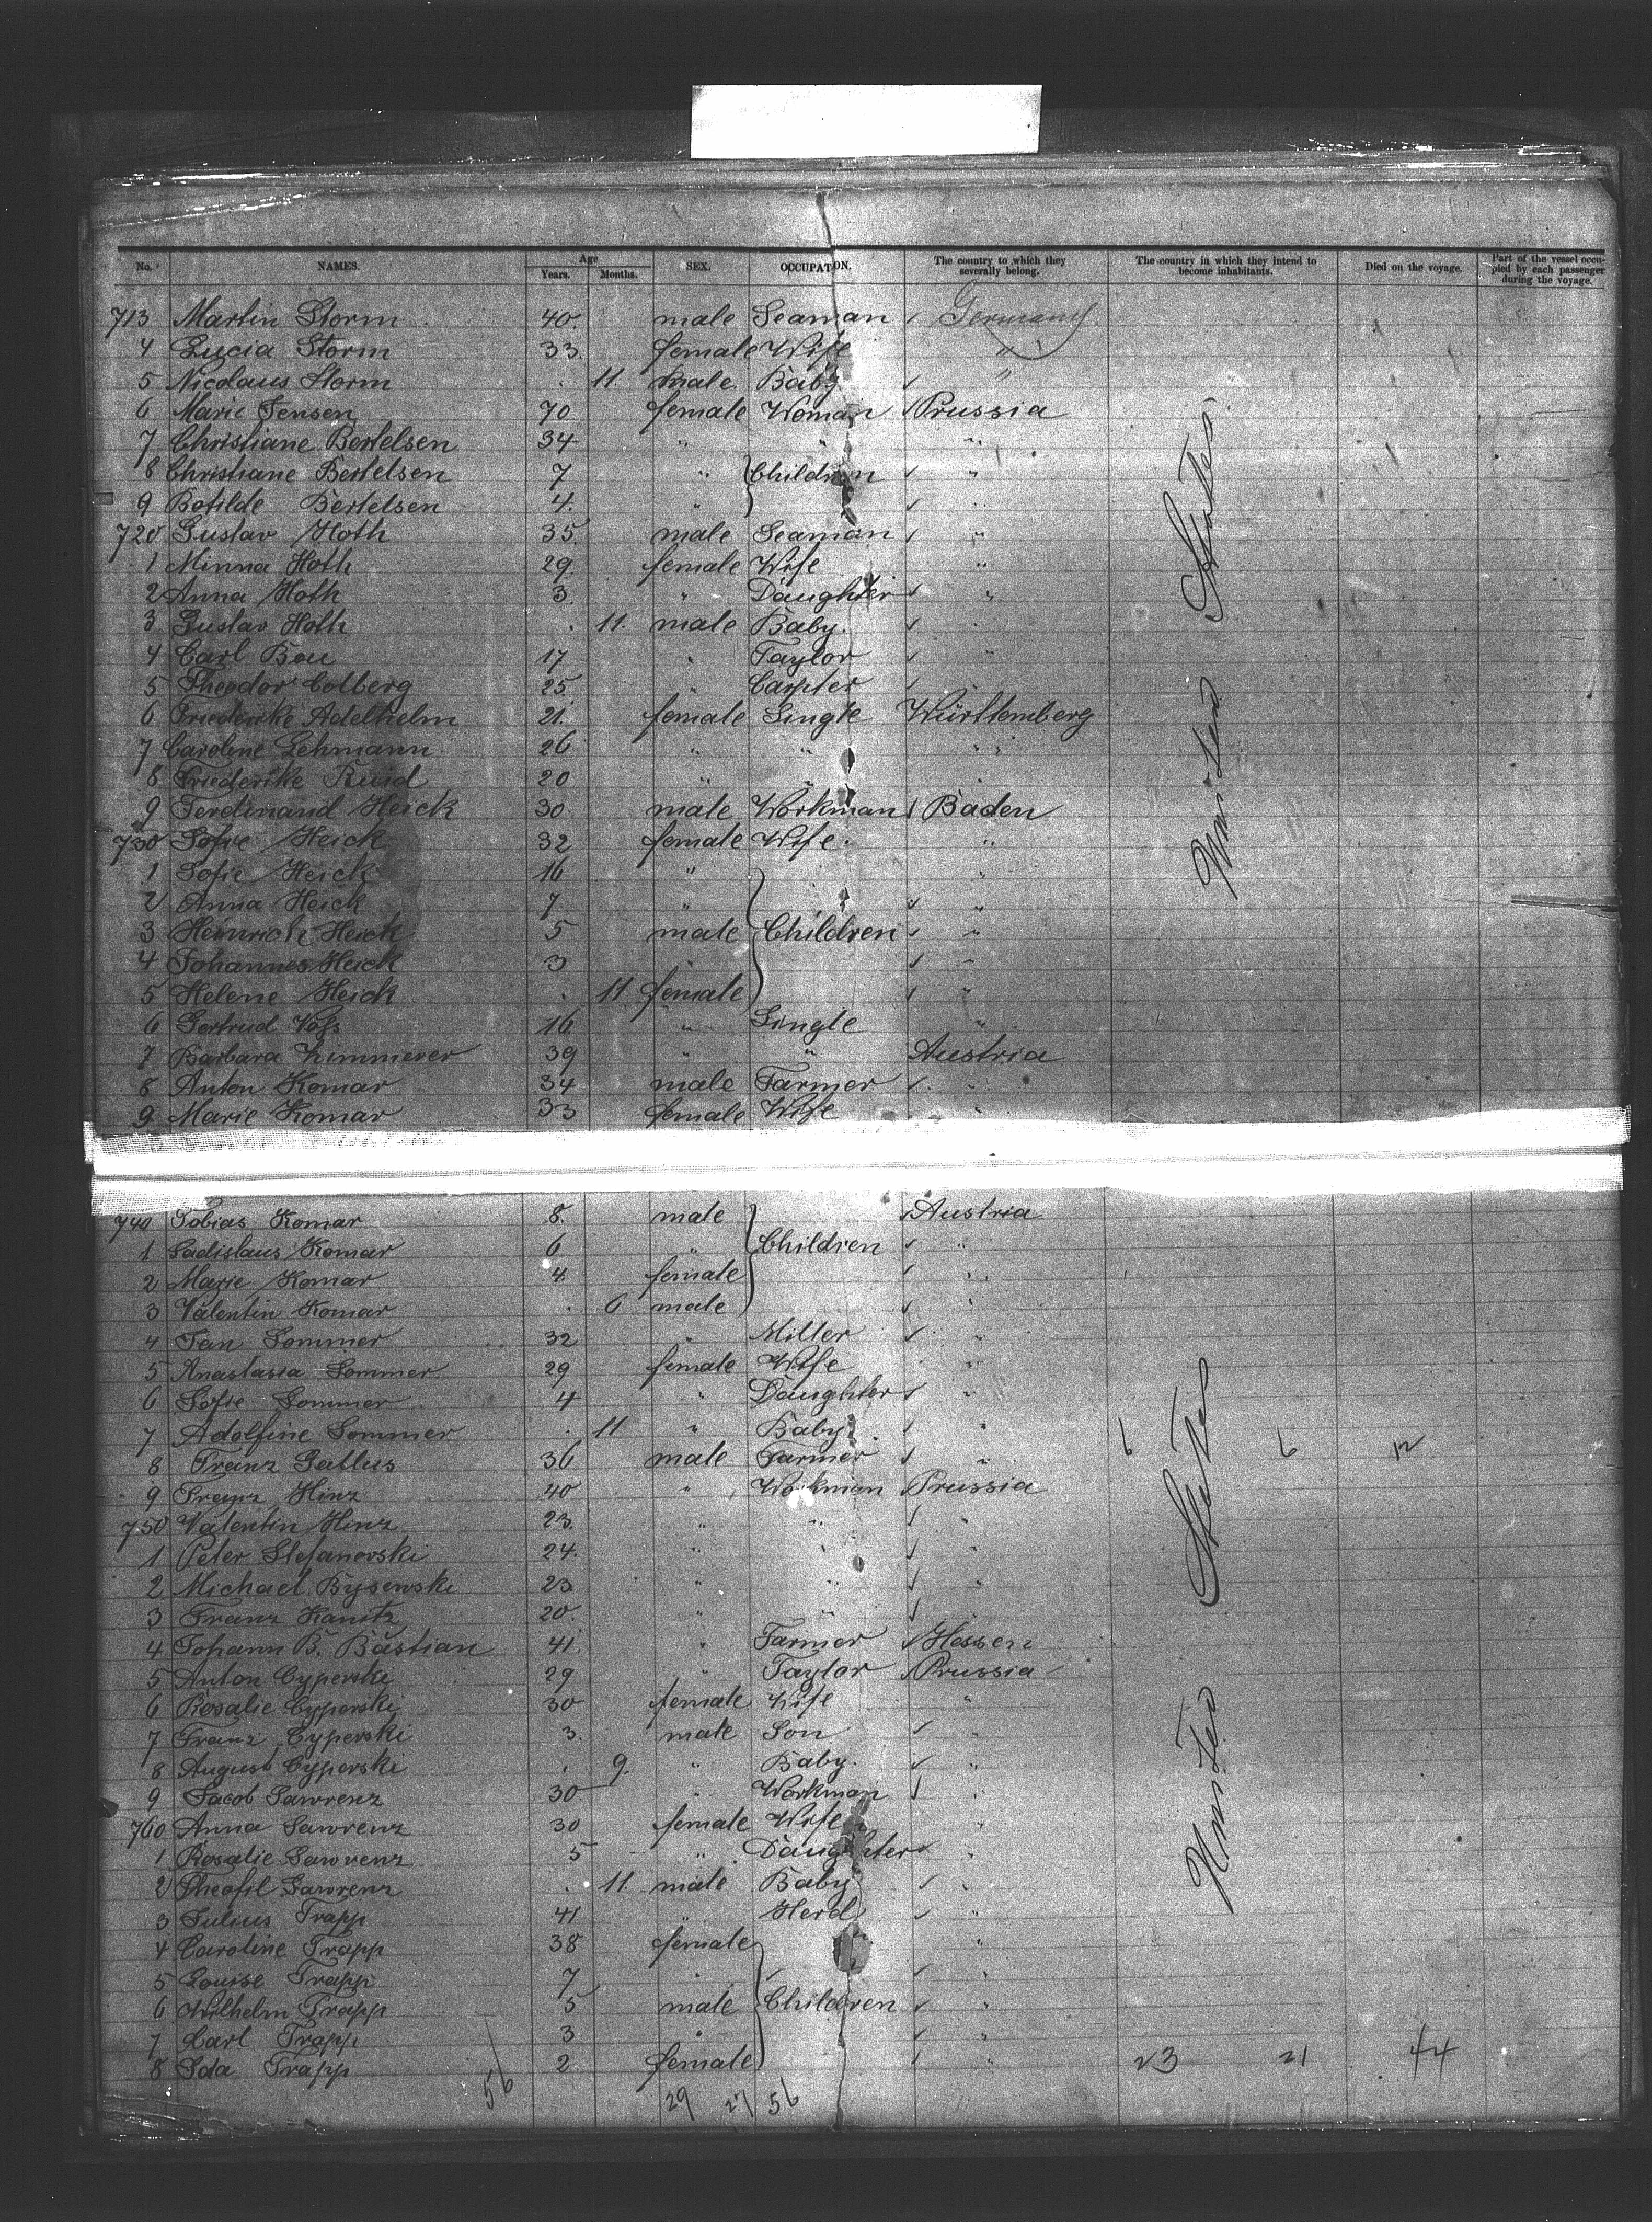 No. NAMES. Age Years. Months. SEX. OCCUPATION. The country to which they severally belong. The country in which they intend to become inhabitants. Died on the voyage. Part of the vessel occupied by each passenger during the voyage.
713 Martin Storm 40. male Seaman ✓ Germany
4 Lucia Storm 33 female Wife "
5 Nicolaus Storm . 11 male Baby ✓ "
6 Marie Jensen 70 female Woman ✓ Prussia
7 Christiane Bertelsen 34 " " "
8 Christiane Bertelsen 7 " Children ✓ "
9 Botilde Bertelsen 4. " ✓ "
720 Gustav Hoth 35. male Seaman ✓ "
1 Minna Hoth 29. female Wife "
2 Anna Hoth 3. " Daughter ✓ "
3 Gustav Hoth . 11. male Baby. ✓ "
4 Carl Bou 17 " Taylor ✓ "
5 Theodor Colberg 25 " Carpter ✓ "
6 Friedericke Adelhelm 21. female Single Württemberg
7 Caroline Lehmann 26 " " "
8 Friederike 20 " " "
9 Ferdinand Heick 30 male Workman ✓ Baden
730 Sofie Heick 32 female Wife. "
1 Sofie Heick 16 " "
2 Anna Heick 7 " ✓ "
3 Heinrich Heick 5 male Children ✓ "
4 Johannes Heick 3 " ✓ "
5 Helene Heick . 11 female ✓ "
6 Gertrud Voss 16 " Single "
7 Barbara Zimmerer 39 " " Austria
8 Anton Komar 34 male Farmer ✓ "
9 Marie Komar 33 female Wife "
United States
740 Tobias Komar 8. male ✓ Austria
1 Ladislaus Komar 6 " Children ✓ "
2 Marie Komar 4 female ✓ "
3 Valentin Komar . 6 male ✓ "
4 Jan Sommer 32 " Miller ✓ "
5 Anastasia Sommer 29 female Wife "
6 Sofie Sommer 4 " Daughter ✓ "
7 Adolfine Sommer . 11 " Baby ✓ " 6 6 12
8 Franz Gallus 36 male Farmer ✓ "
9 Franz Hinz 40 " Workman Prussia
750 Valentin Hinz 23. " " ✓ "
1 Peter Stefanovski 24. " " ✓ "
2 Michael Bysewski 23 " " ✓ "
3 Franz Kanitz 20. " " ✓
4 Johann B. Bastian 41. " Farmer ✓ Hessen
5 Anton Cyperski 29 " Taylor ✓ Prussia
6 Rosalie Cyperski 30 female Wife "
7 Franz Cyperski 3. male Son ✓ "
8 August Cyperski . 9. " Baby. ✓ "
9 Jacob Lawrenz 30 " Workman ✓ "
760 Anna Lawrenz 30 female Wife "
1 Rosalie Lawrenz 5 " Daughter ✓ "
2 Theofil Lawrenz . 11 male Baby ✓ "
3 Julius Trapp 41 " Herd ✓ "
4 Caroline Trapp 38 female "
5 Louise Trapp 7 " ✓ "
6 Wilhelm Trapp 5 male Children ✓ "
7 Carl Trapp 3 " ✓ "
8 Ida Trapp 2 female ✓ " 23 21 44
United States
56 29 27 56